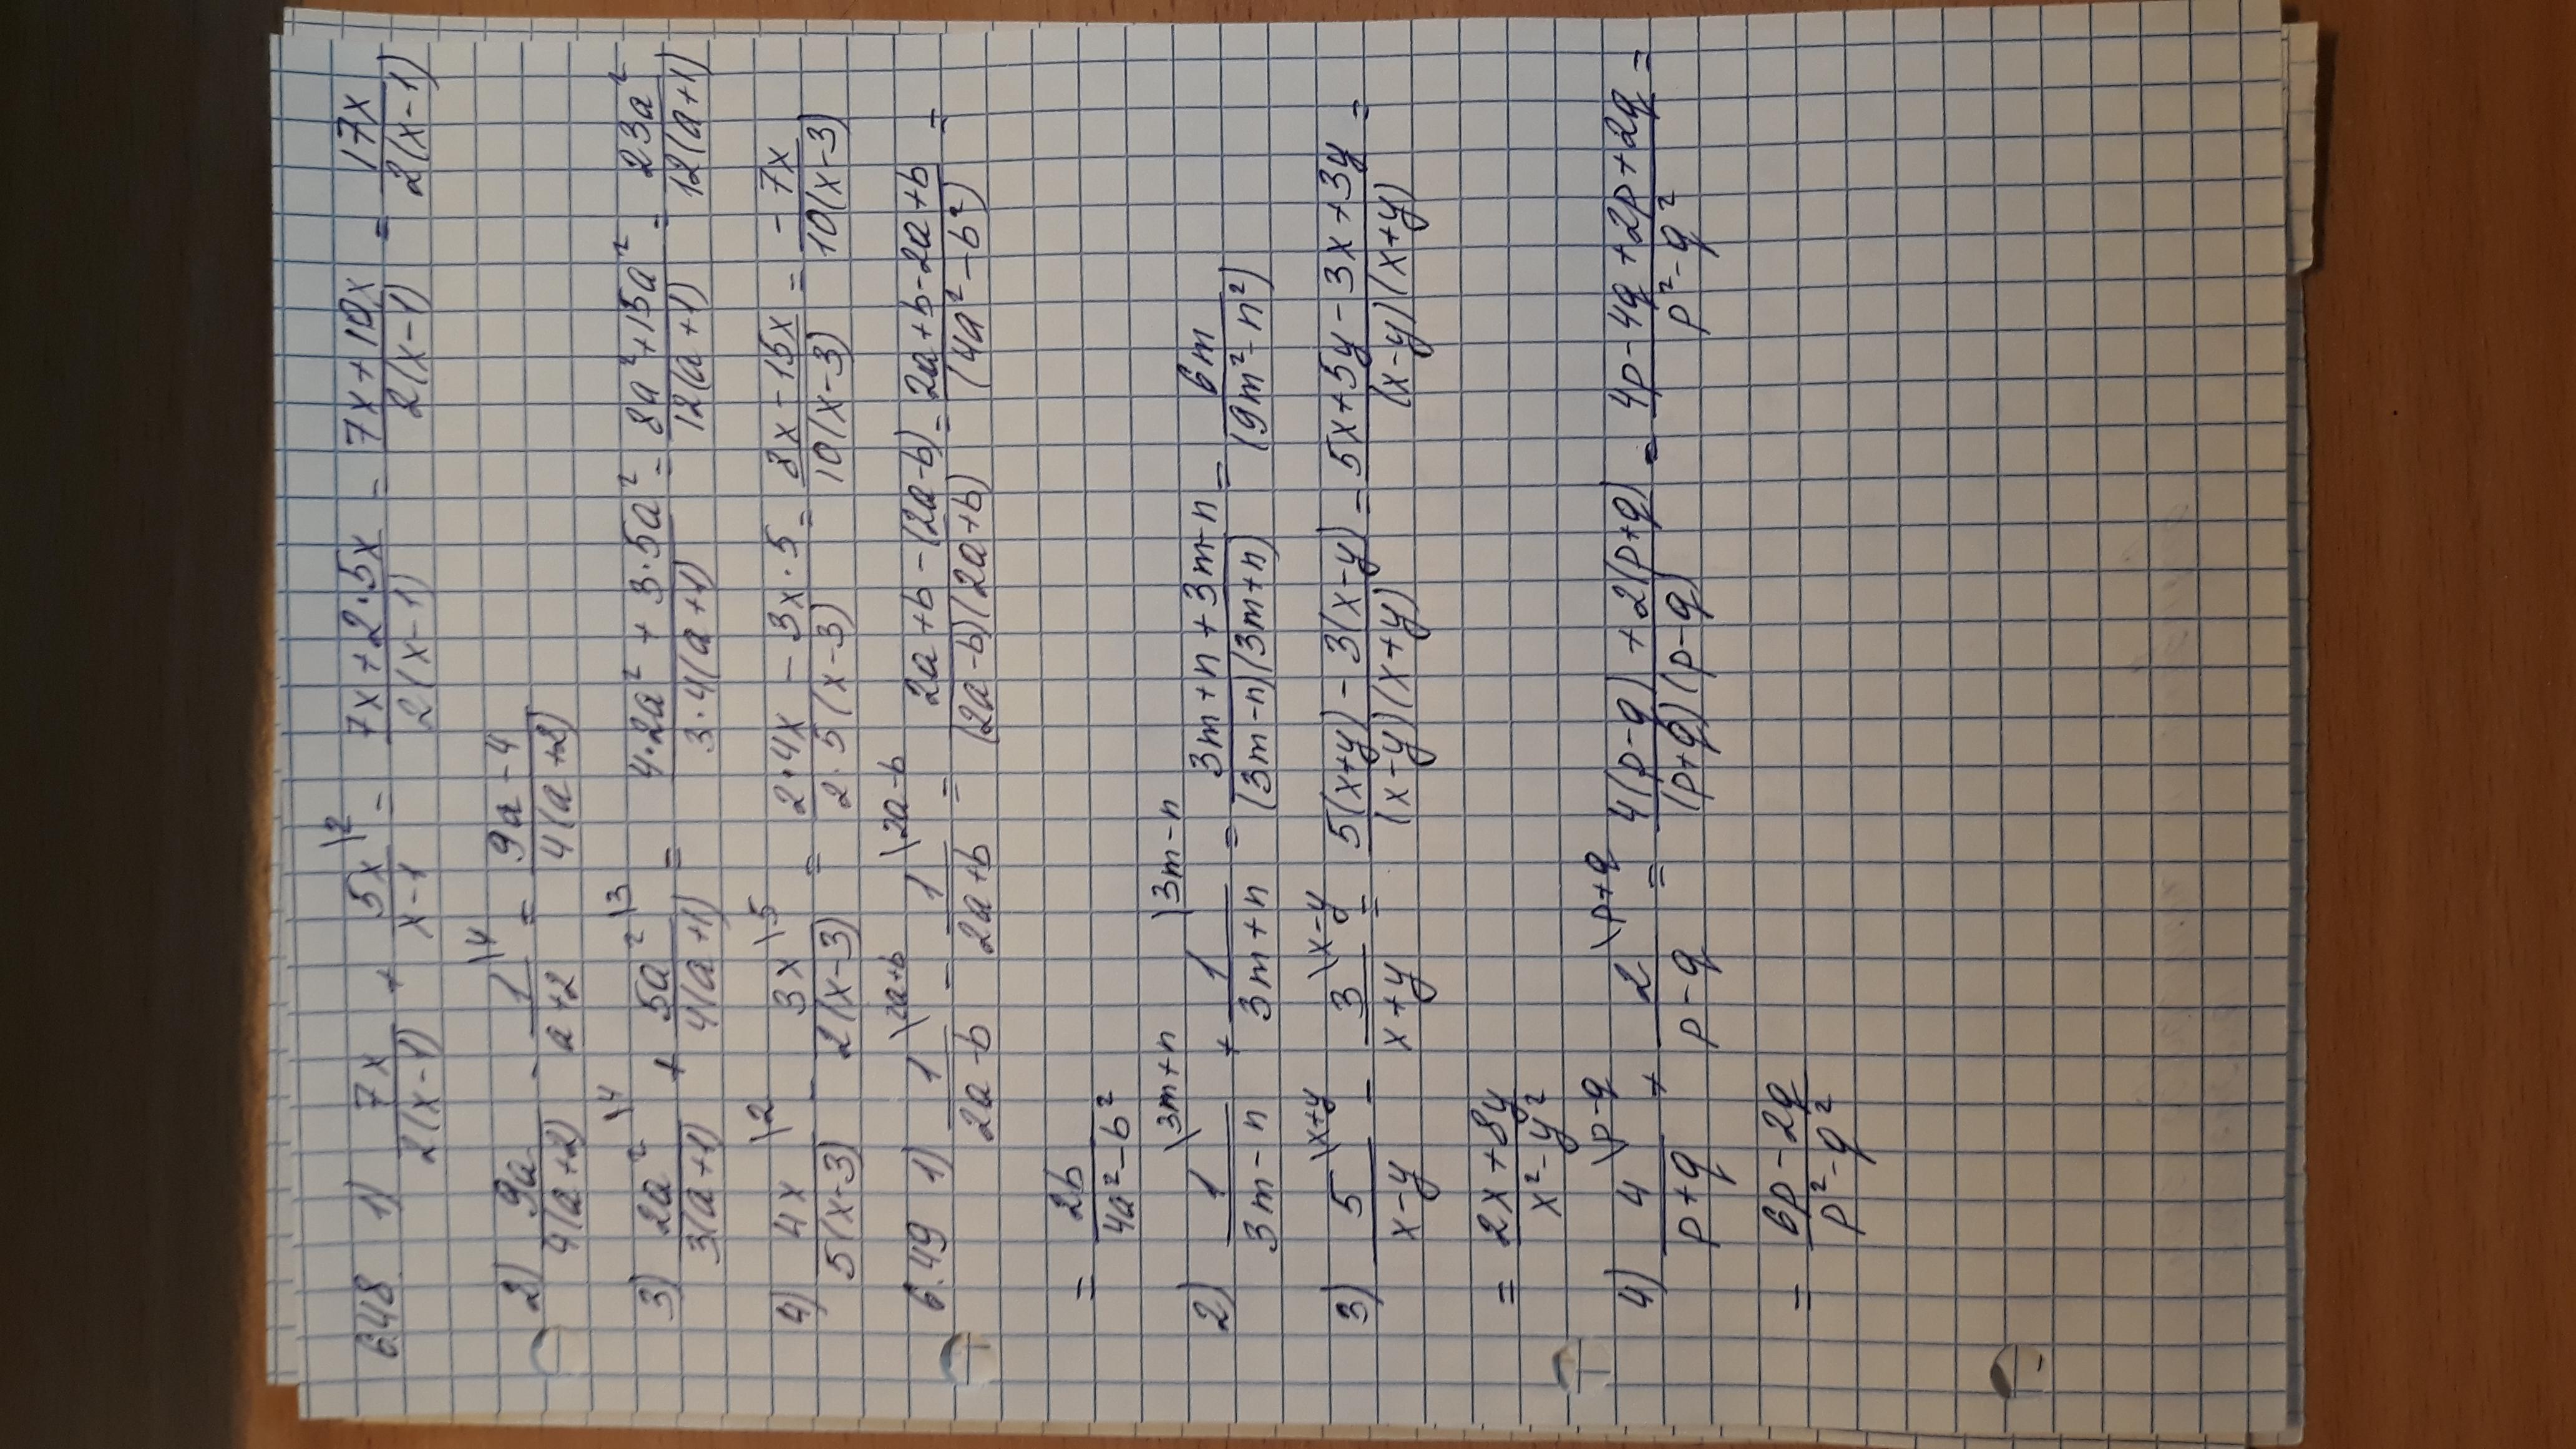 6.48 1) 7x/2(x-1) + 5x\2/x-1 = 7x+2·5x/2(x-1) = 7x+10x/2(x-1) = 17x/2(x-1)
2) 9a/4(a+2) - 1\4/a+2 = 9a-4/4(a+2)
3) 2a²\4/3(a+1) + 5a²\3/4(a+1) = 4·2a²+3·5a²/3·4(a+1) = 8a²+15a²/12(a+1) = 23a²/12(a+1)
4) 4x\2/5(x-3) - 3x\5/2(x-3) = 2·4x-3x·5/2·5(x-3) = 8x-15x/10(x-3) = -7x/10(x-3)
6.49 1) 1\2a+b/2a-b - 1\2a-b/2a+b = 2a+b-(2a-b)/(2a-b)(2a+b) = 2a+b-2a+b/(4a²-b²) =
= 2b/4a²-b²
2) 1\3m+n/3m-n + 1\3m-n/3m+n = 3m+n+3m-n/(3m-n)(3m+n) = 6m/(9m²-n²)
3) 5\x+y/x-y - 3\x-y/x+y = 5(x+y)-3(x-y)/(x-y)(x+y) = 5x+5y-3x+3y/(x-y)(x+y) =
= 2x+8y/x²-y²
4) 4\p-q/p+q + 2\p+q/p-q = 4(p-q)+2(p+q)/(p+q)(p-q) = 4p-4q+2p+2q/p²-q² =
= 6p-2q/p²-q²